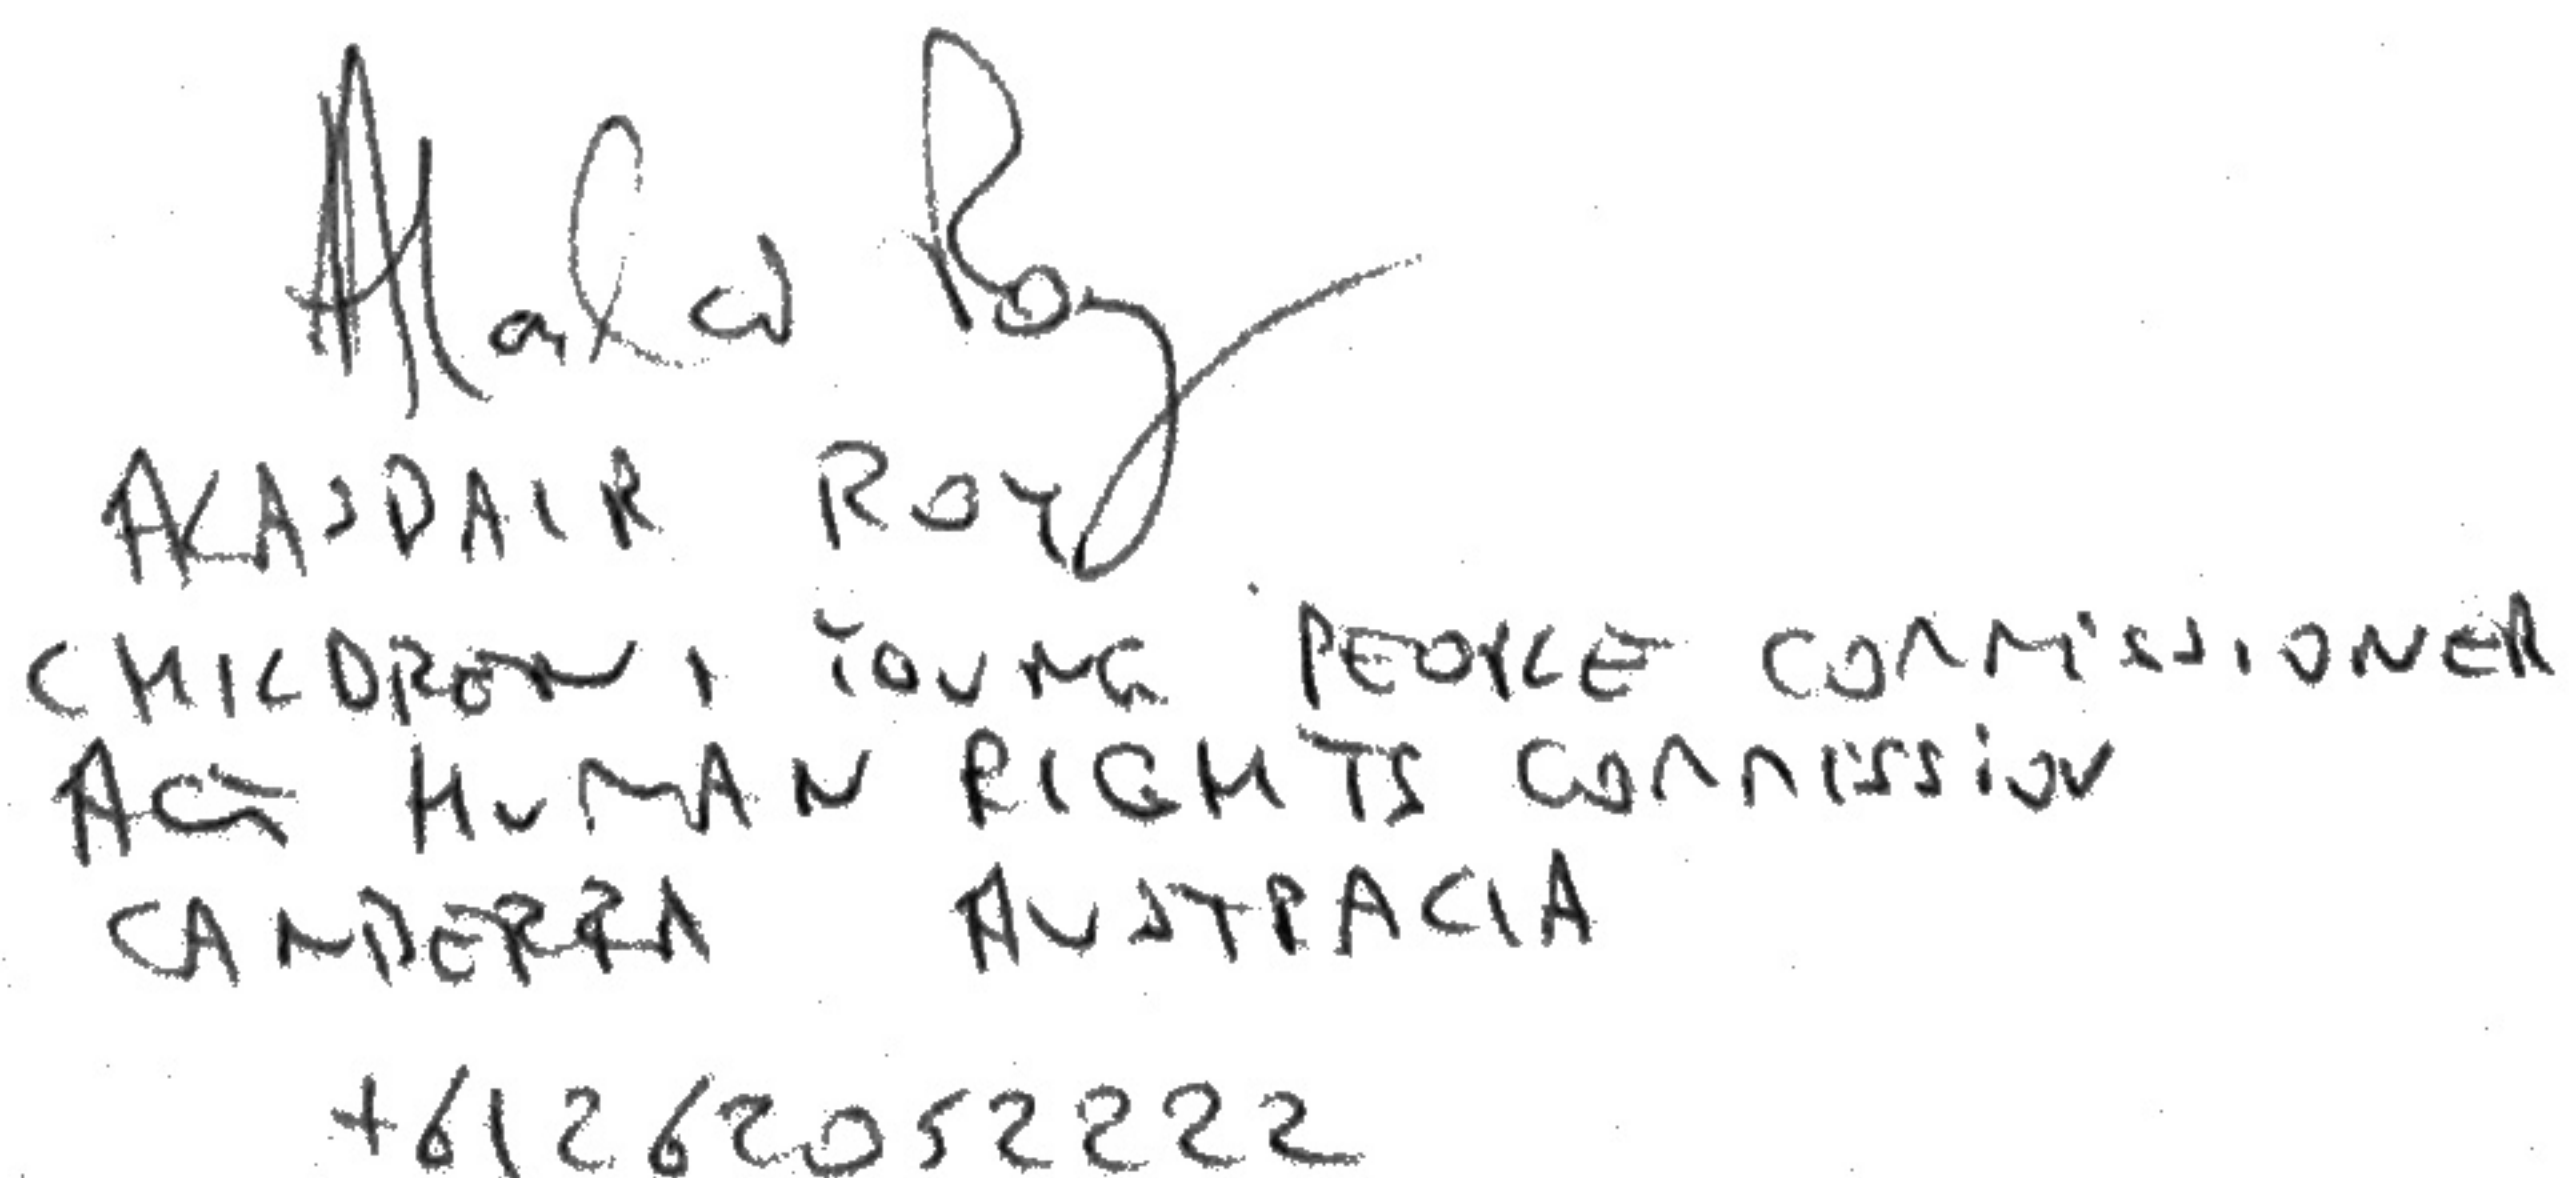 Alasdair Roy
ALASDAIR ROY
CHILDREN + YOUNG PEOPLE COMMISSIONER
ACT HUMAN RIGHTS COMMISSION
CANBERRA AUSTRALIA
+61262052222